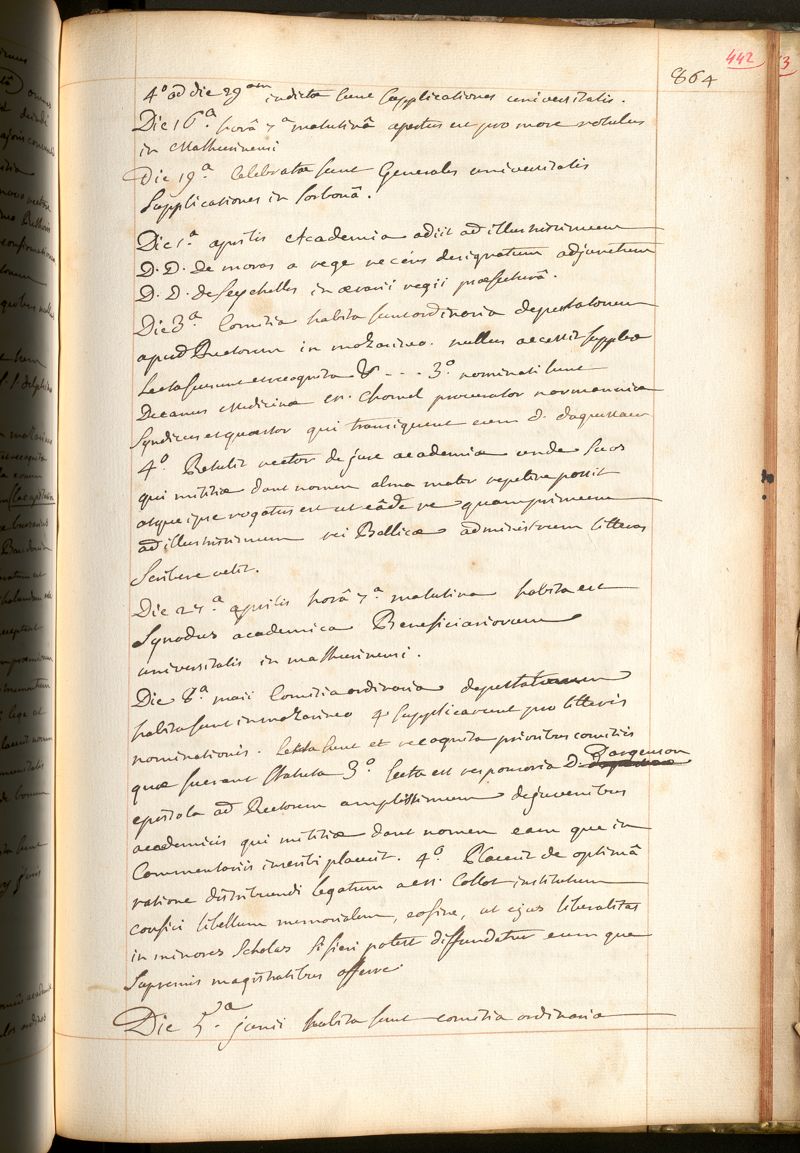 442
864
4º ad die 29am indictæ sunt supplicationes universitatis.
Die 16.ª horâ 7ª matutinâ apertus est pro more rotulus
in Mathurinensi
Die 19.ª Celebratæ sunt Generales universitatis
Supplicationes in Sorbonâ.
Die 1.ª aprilis Academia adiit ad illustrissimum
D. D. de moras a rege recens designatum adjunctum
D. D. de Seychelles in ærarii regii præfecturâ.
Die 3.ª Comitia habita sunt ordinaria deputatorum
apud Rectorem in mazarinæo. nullus accessit supplex
Lecta fuerunt et recognita & --- 3.º nominati sunt
Decanus Medicinæ M. Chomel procurator normanniæ
Syndicus et quæstor qui transigerent cum D. daguesseau
4.º Retulit rector de jure academiæ unde suos
qui militiæ dant nomen alma mater repetere possit
atque ipse rogatus est ut eâde re quamprimum
ad illustrissimum rei Bellicæ administrum litteras
Scribere velit.
Die 27.ª aprilis horâ 7.ª matutina habita est
Synodus academica Beneficiariorum
universitatis in mathurinensi.
Die 8.ª maii Comitia ordinaria deputatorum
habita sunt in mazarinæo 4 supplicarunt pro litteris
nominationis. Lecta sunt et recognita prioribus comitiis
quæ fuerant Statuta 3.º Lecta est responsoria D. Dargenson
epistola ad Rectorem amplissimum de juvenibus
academicis qui militiæ dant nomen eam que in
Commentariis inseri placuit. 4.º Placuit de optimâ
ratione distribuendi legatum a M. Collot institutum
confici libellum memorialem, eo fine, ut ejus liberalitas
in minores Scholas si fieri potest diffundatur eum que
Supremis magistratibus offerre.
Die 5.ª junii habita sunt comitia ordinaria